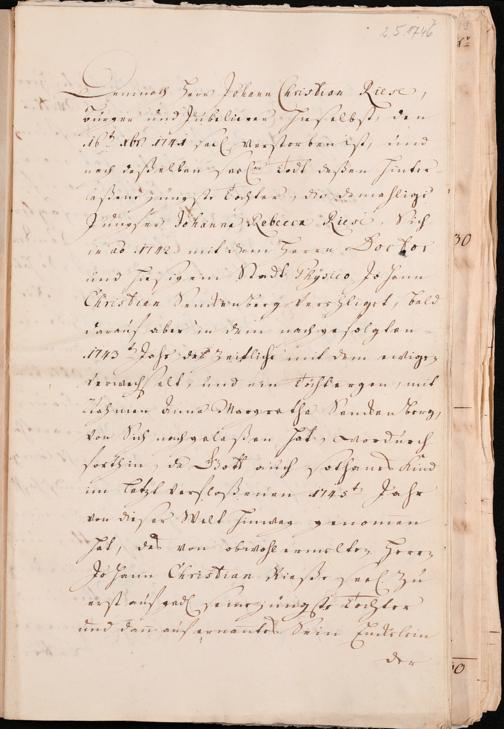 2 5 1746
Demnach Herr Johann Christian Riese,
Burger und Jubelierer hieselbst, den
16t 8br 1741 seel. verstorben ist, und
nach deßelben seel. Todt deßen hinter-
laßene jüngste Tochter, die damahlige
Jungfer Johanna Rebecca Riese, Sich
in ao 1742 mit dem Herrn Doctor
und hiesigem Stadt Physico Johann
Christian Senckenberg verehliget, bald
darauf aber in dem nachgefolgten
1743t Jahr das Zeitliche mit dem ewigen
verwechselt, und ein Töchtergen, mit
Nahmen Anna Margretha Senckenberg,
von Sich nachgelaßen hat, wordurch
forthin, da Gott auch sothanes Kind
im letzt verfloßenen 1745t Jahr
von dieser Welt hinweg genomen
hat, das von obwohlermelten Herrn
Johann Christian Rieße seel. zu
erst auf seine jüngste Tochter
und dan auf ernantes Sein Enckelein
der
30